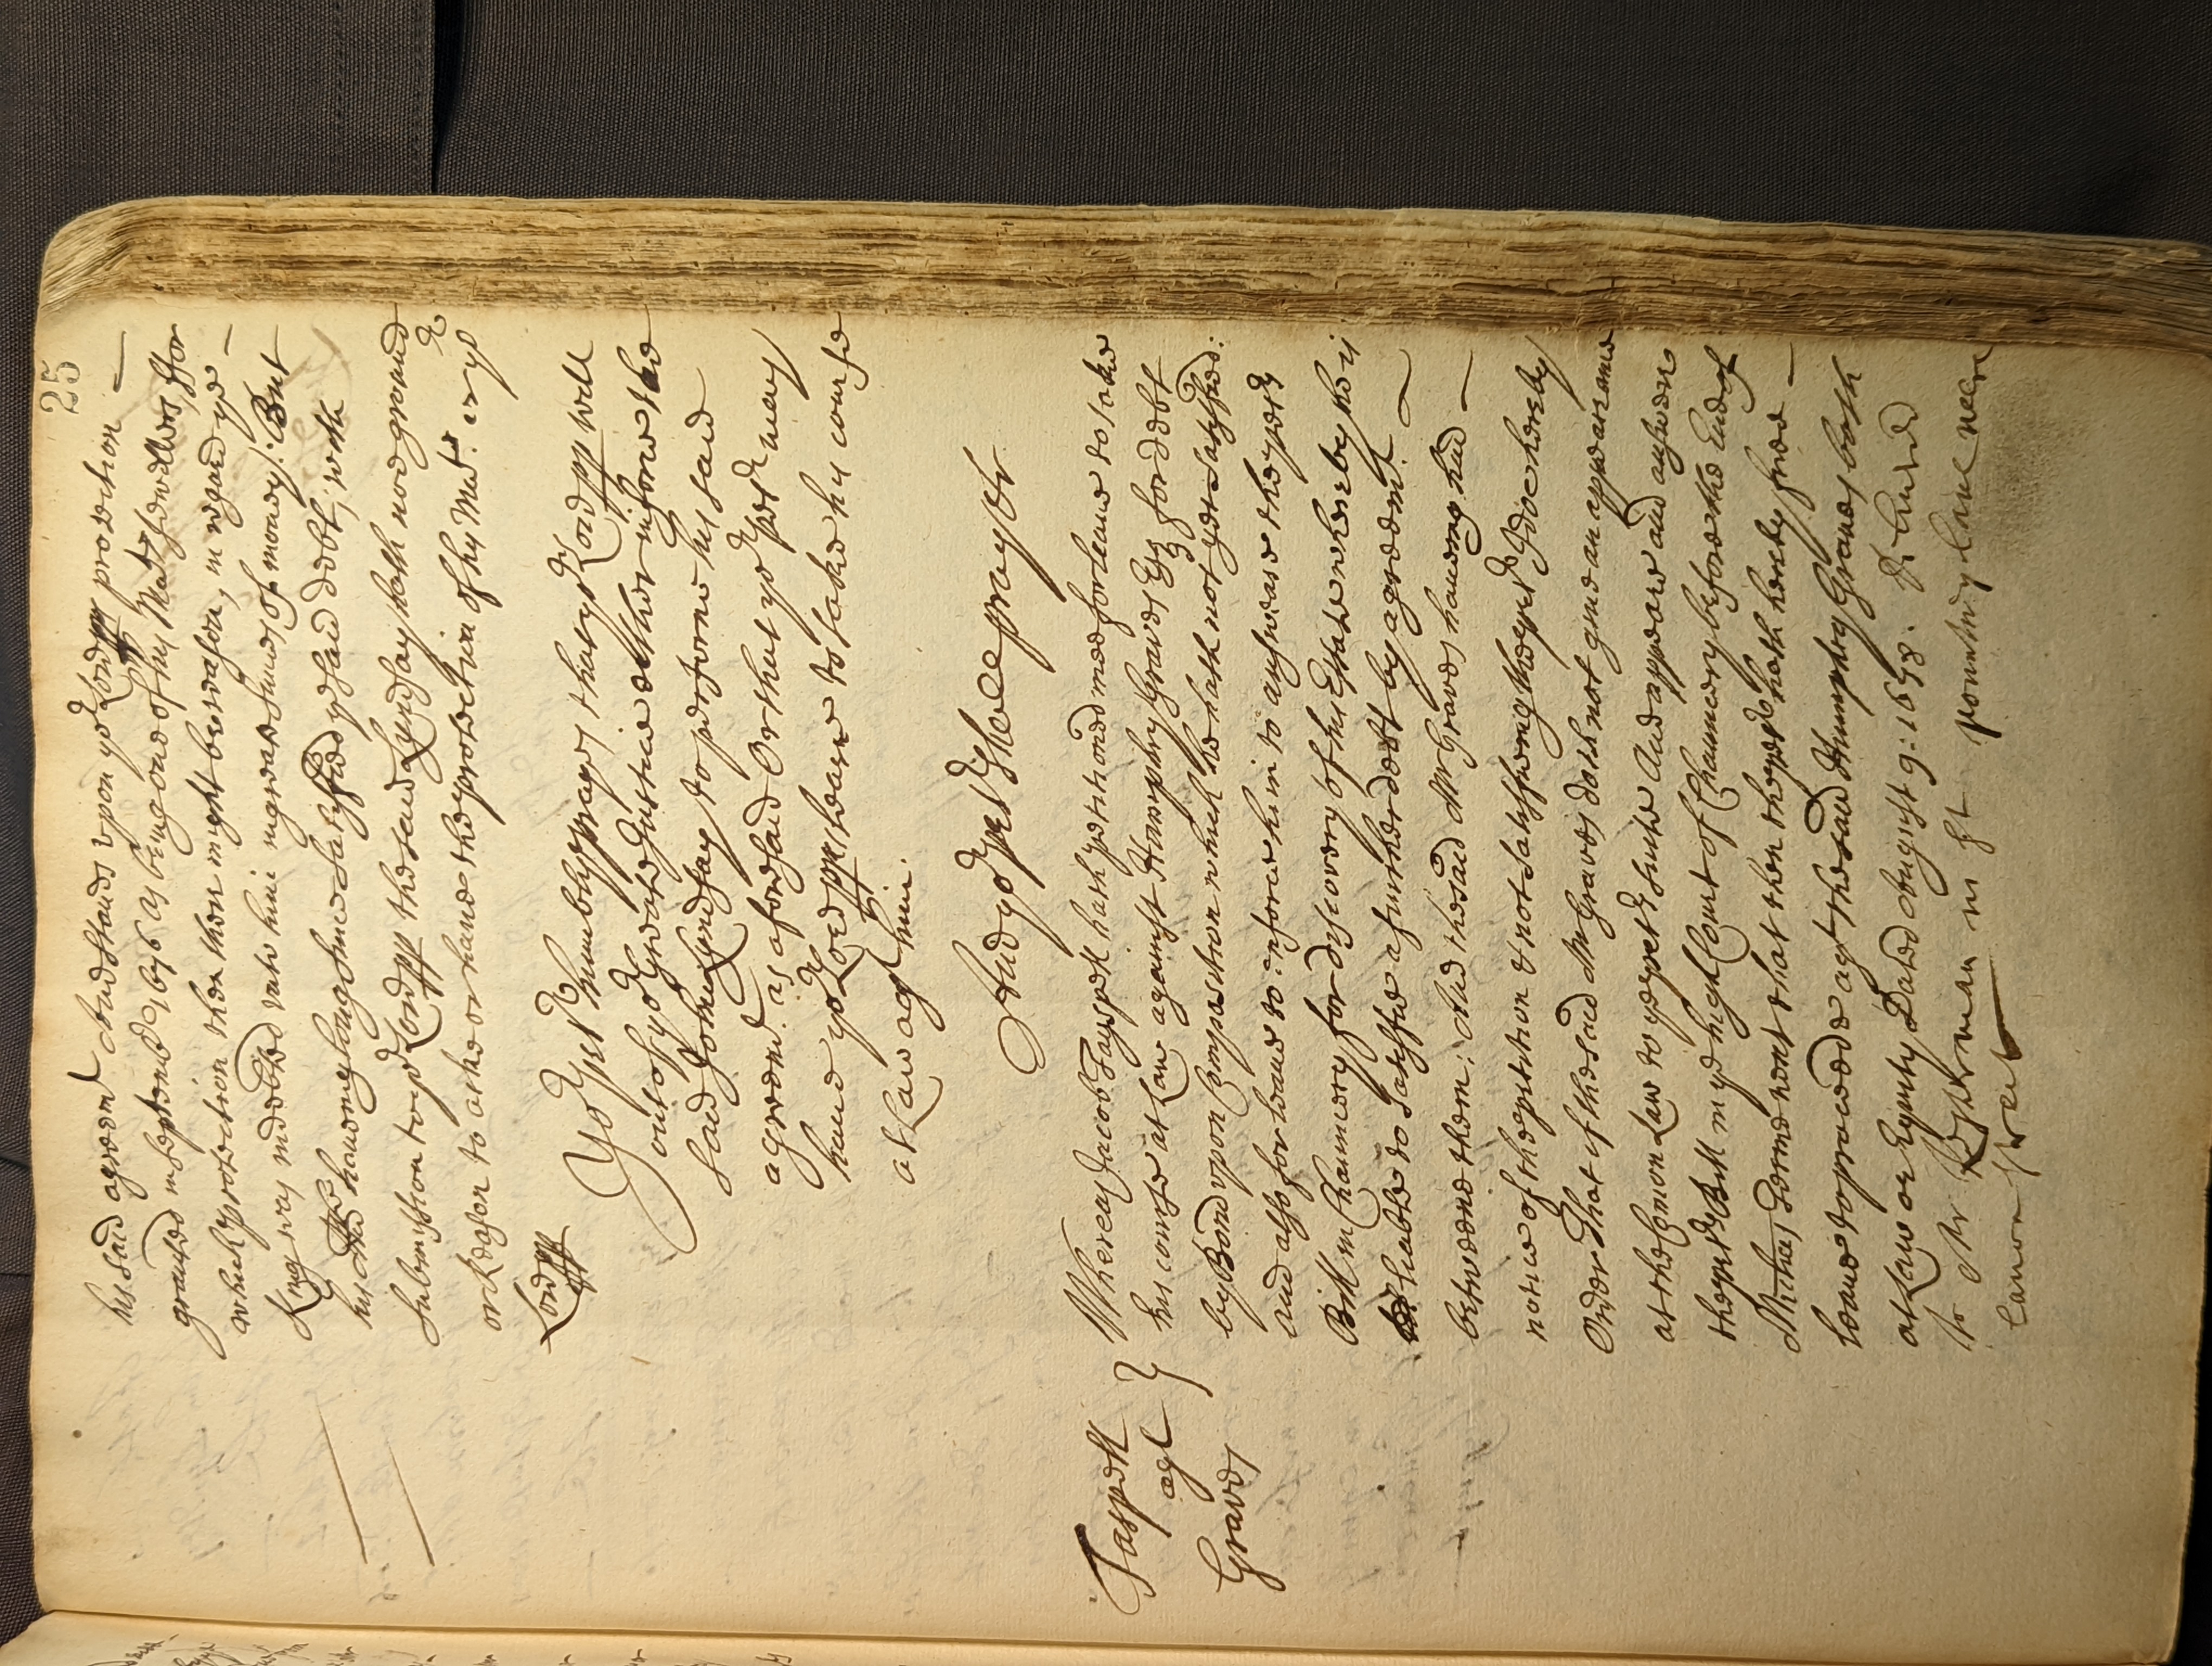 25
his said agreemt. butt stands upon yor. Lordpps protection
graunted in Septemb: 1656 as being one of his Mats. servants, ffor
which protection then there might bee reason, in regard ye
King was indebted unto him in greate summes of money: But
his Matie haveing long since satisfied ye said debt, with
submission to yor. Lordpp the said Lyndsay hath noe ground
or reason to aske or have the protection of his Matie. or yor
Lordpp
Yor. Petr. humbly prayes that yor. Lordpp will
out of yor. Greate Justice either inforce the
said John Lyndsay to performe his said
agreemt. as aforesaid Or that yor. Petr may
have yor. Lordpps leave to take his course
at Law agt him.
And yor. Petr. shall pray &c.
Jaspell
agt
Graves
Whereas Jacob Jaspell hath petitioned mee for leave to take
his course at Law against Humphry Graves Esq for a debt
by Bond upon Composition which he hath not yet satisfied:
and also for leave to inforce him to answeare the petrs
Bill in Chauncery for discovery of his Estate whereby he is
liable to satisfie a further debt by agreemt.
betweene them: And the said Mr Graves haveing had
notice of the petition & not satisfieing the petr. I doe hereby
Order That if the said Mr Graves doth not give an appearance
at the Comon Law to ye petrs suite And appeare and answere
the petrs Bill in ye high Court of Chauncery before the End of
Michas Terme next that then the petr hath hereby free
leave to proceede agt the said Humphry Graves both
at Law or Equity Dated August 9: 1678.
to Mr man in St
Lanwrence